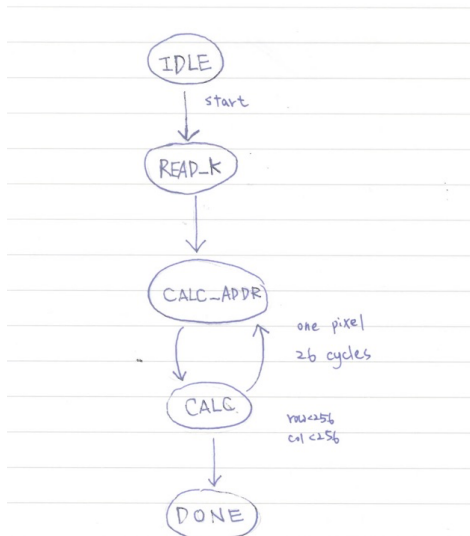 IDLE
start
READ_K
CALC_ADDR
one pixel
26 cycles
CALC
row<256
col<256
DONE